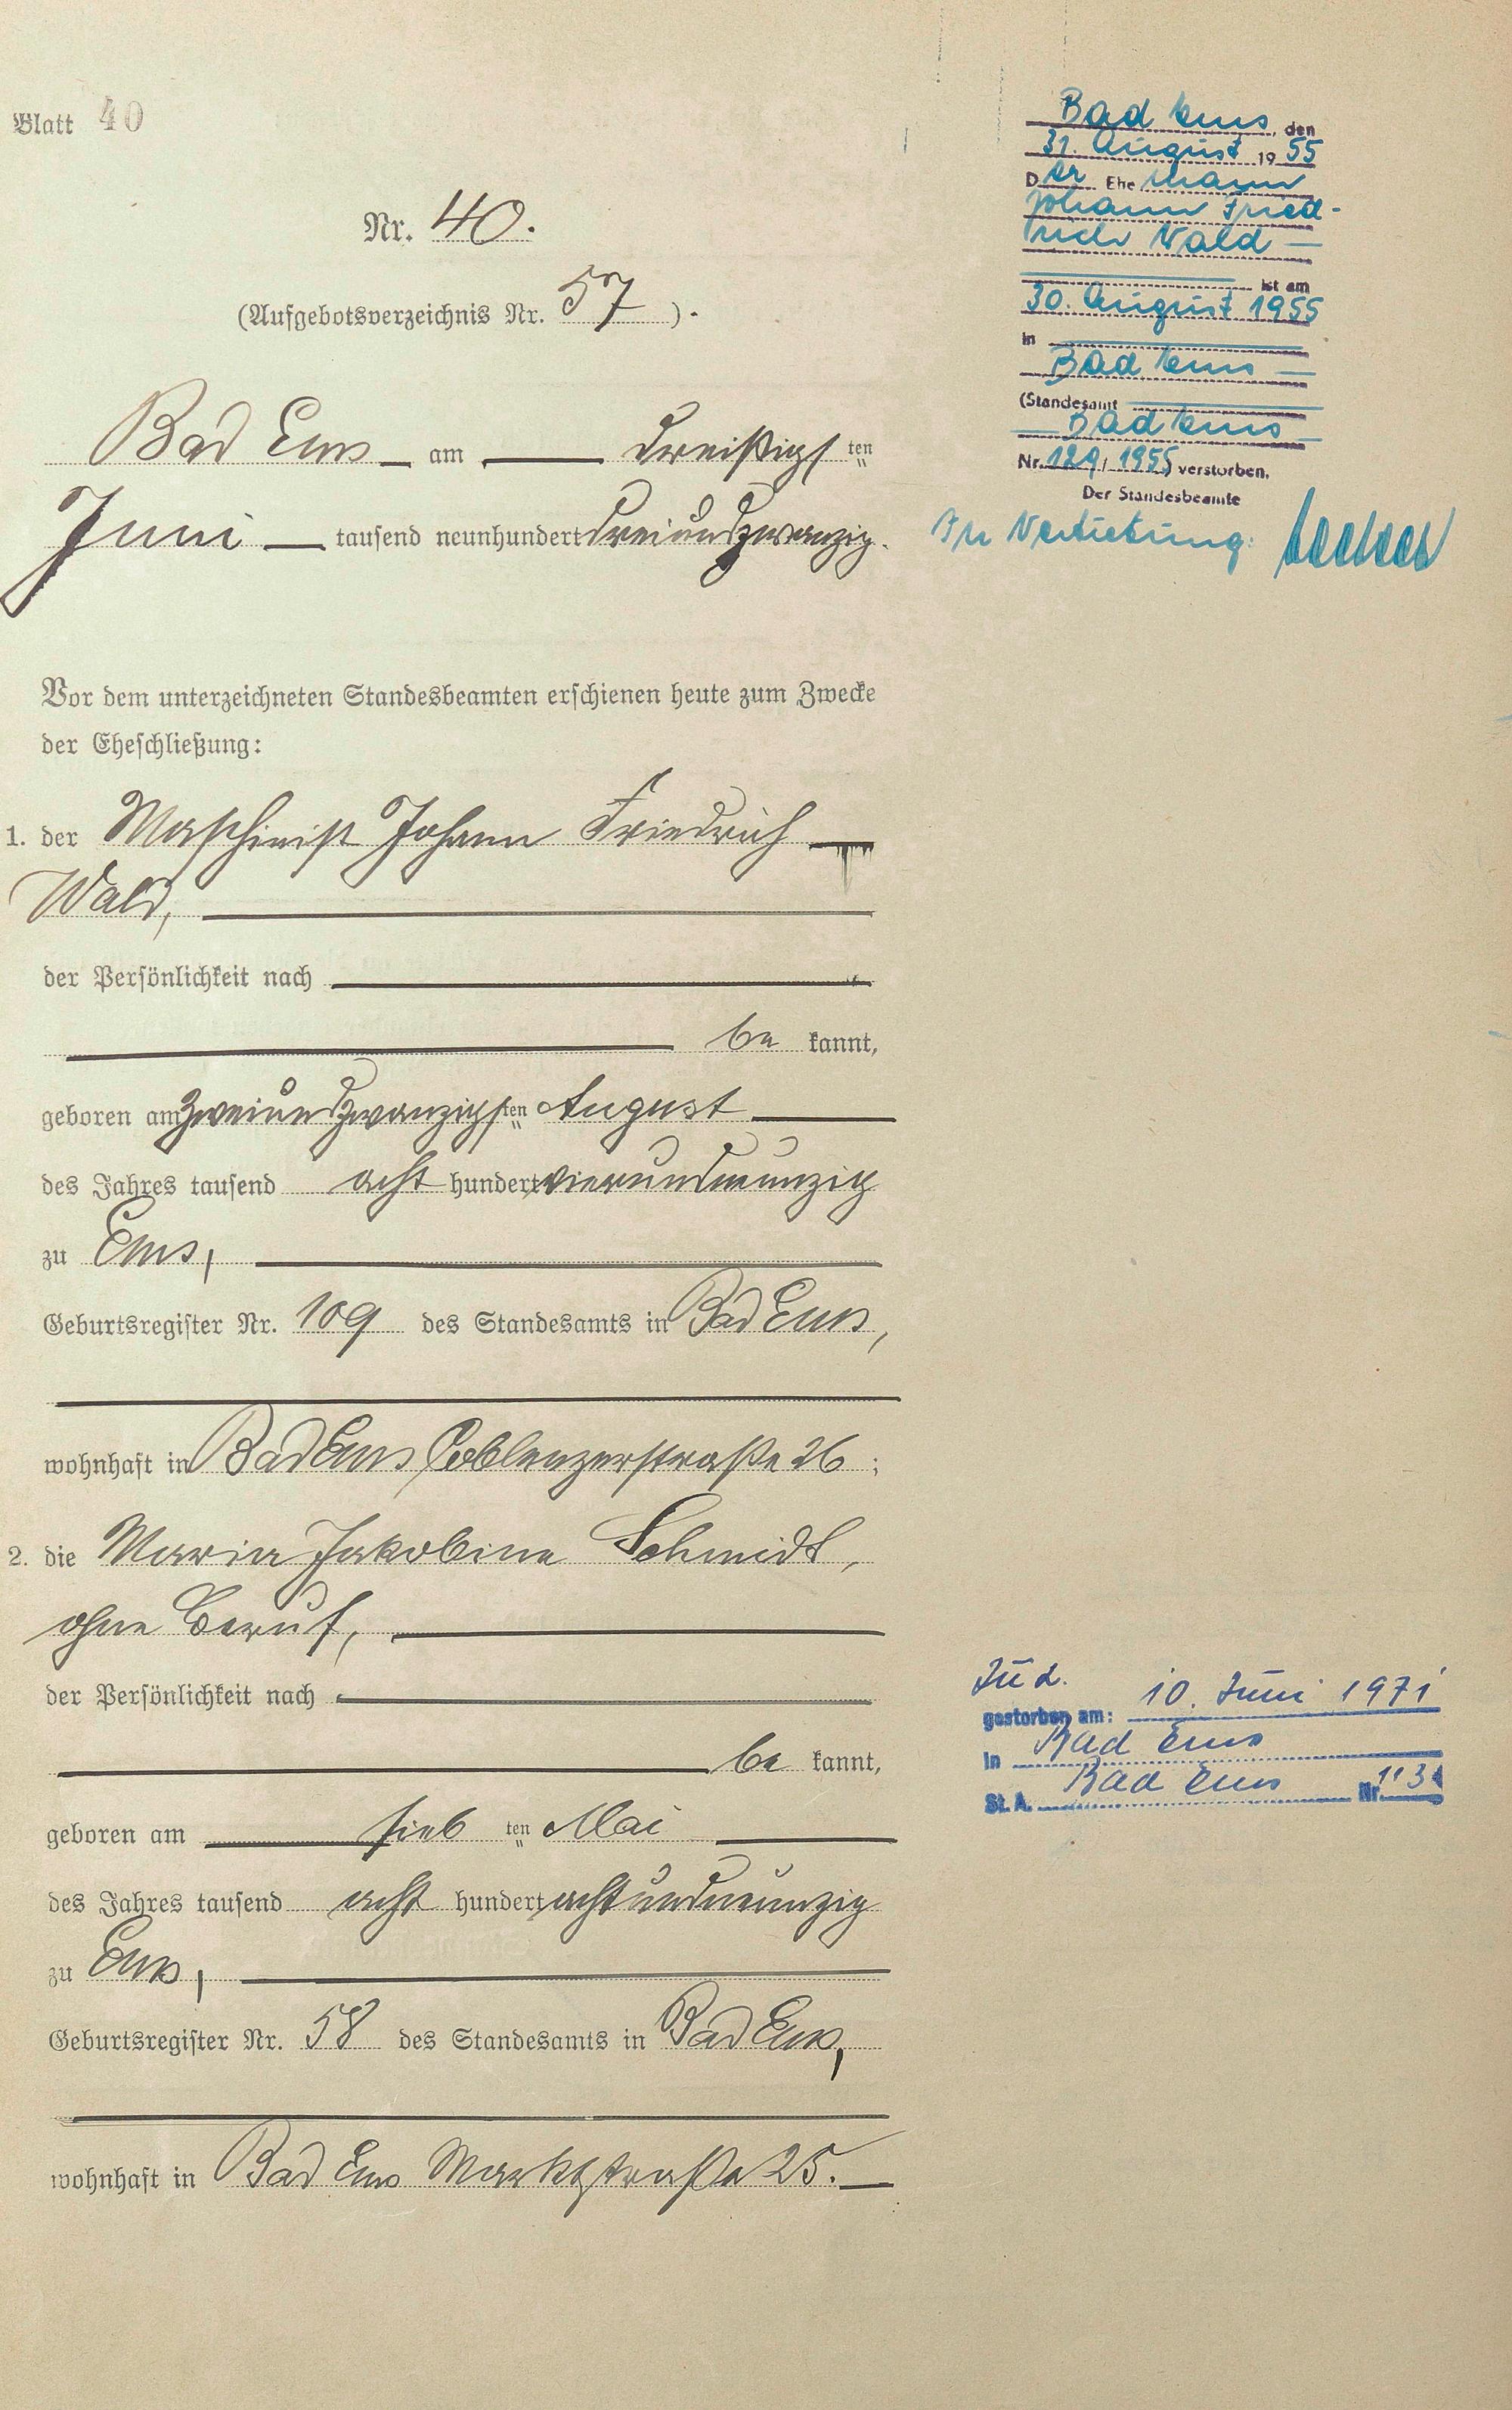 Blatt 40
Nr. 40.
(Aufgebotsverzeichnis Nr. 57).
Bad Ems am dreißigsten
Juni tausend neunhundert dreiundzwanzig.
Vor dem unterzeichneten Standesbeamten erschienen heute zum Zwecke
der Eheschließung:
1. der Maschinist Johann Friedrich
Wald,
der Persönlichkeit nach
be kannt,
geboren am zweiundzwanzigsten August
des Jahres tausend acht hundert vierundneunzig
zu Ems,
Geburtsregister Nr. 109 des Standesamts in Bad Ems,
wohnhaft in Bad Ems Coblenzerstraße 26;
2. die Maria Jakobina Schmidt,
ohne Beruf,
der Persönlichkeit nach
be kannt,
geboren am siebten Mai
des Jahres tausend acht hundert achtundneunzig
zu Ems,
Geburtsregister Nr. 58 des Standesamts in Bad Ems,
wohnhaft in Bad Ems Marktstraße 25.
Bad Ems, den
31. August 1955
Der Ehemann
Johann Fried-
rich Wald
ist am
30. August 1955
in
Bad Ems
(Standesamt
Bad Ems
Nr. 129/1955) verstorben.
Der Standesbeamte
In Vertretung:
Zu 2.
gestorben am: 10. Juni 1971
in Bad Ems
St. A. Bad Ems Nr. 113